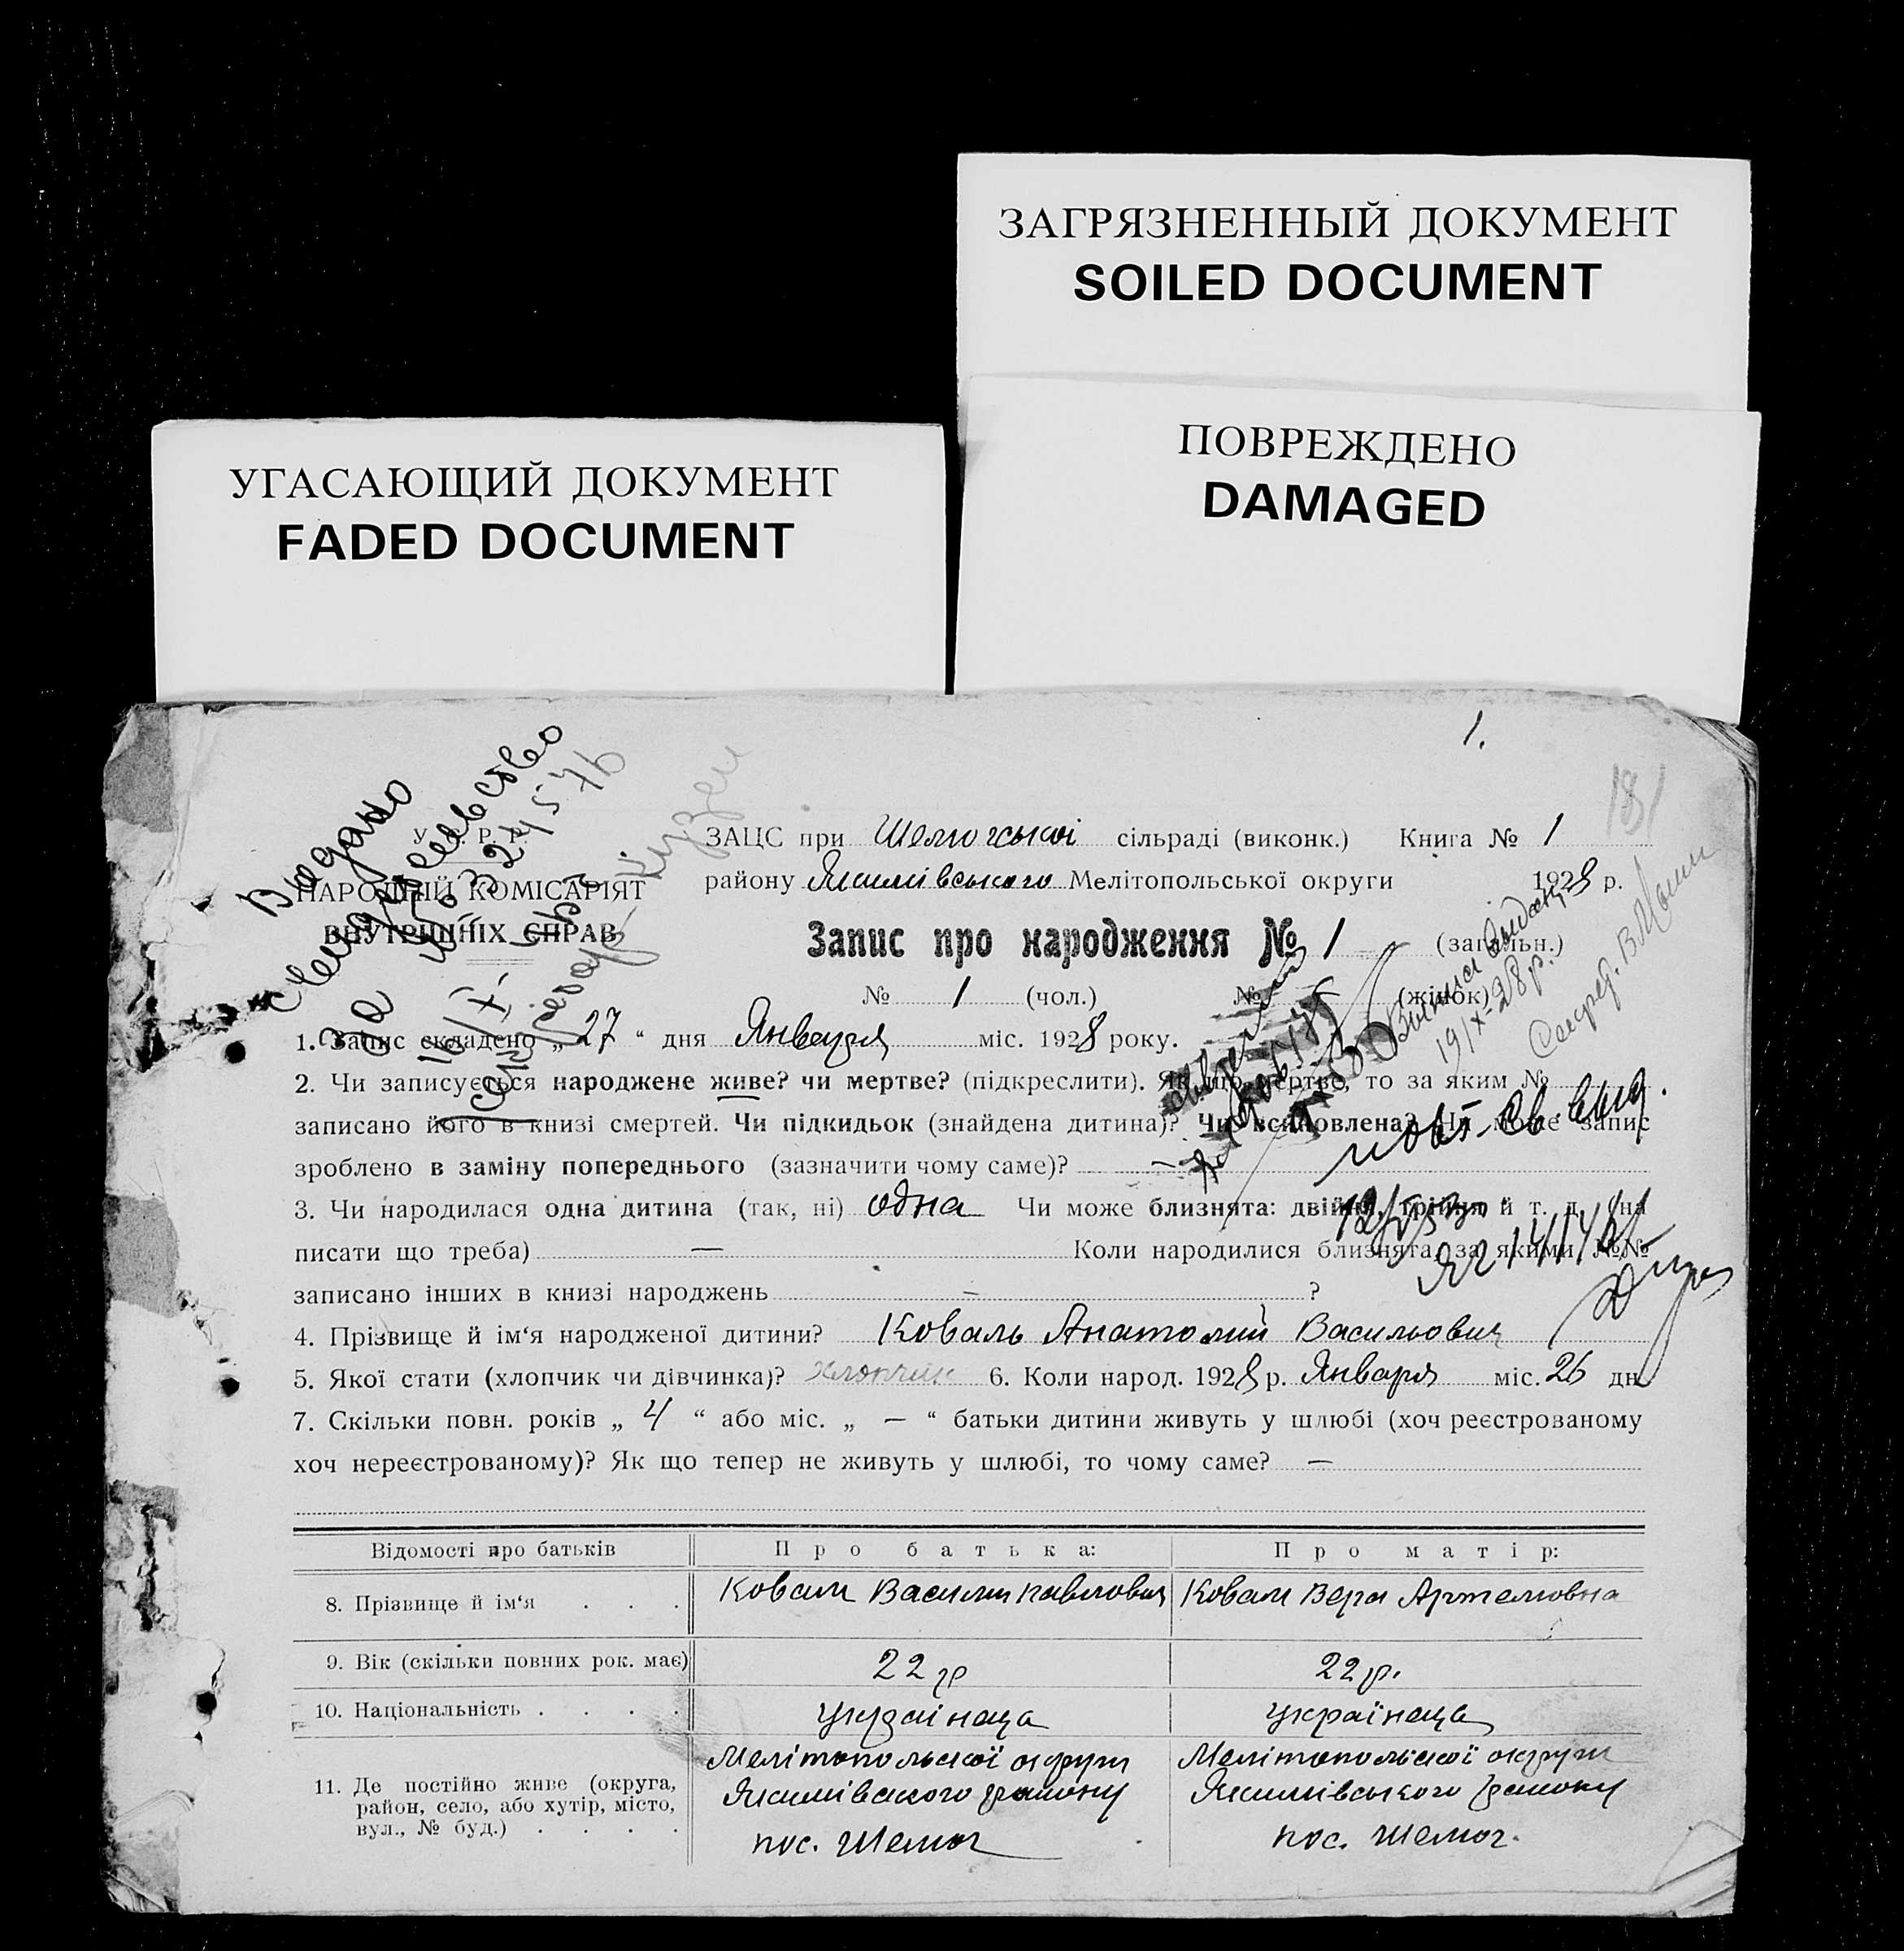 ЗАГРЯЗНЕННЫЙ ДОКУМЕНТ
SOILED DOCUMENT
ПОВРЕЖДЕНО
DAMAGED
УГАСАЮЩИЙ ДОКУМЕНТ
FADED DOCUMENT
1.
181
Видано
свидетельство
У. С. Р. Р.
НАРОДНІЙ КОМІСАРІЯТ
ВНУТРІШНІХ СПРАВ
ЗАЦС при сільраді (виконк.) Книга № 1
району Якимівського Мелітопольської округи 1928 р.
Запис про народження № 1 (загальн.)
№ 1 (чол.) № (жінок)
Виписи видан
19/IX-28р.
1. Запис складено „27“ дня Января міс. 1928 року.
2. Чи записується народжене живе? чи мертве? (підкреслити). Як що мертве, то за яким №
записано його в книзі смертей. Чи підкидьок (знайдена дитина)? Чи всиновлена? Чи може запис
зроблено в заміну попереднього (зазначити чому саме)? —
3. Чи народилася одна дитина (так, ні) одна Чи може близнята: двійня, трійня й т. д. (на
писати що треба) — Коли народилися близнята, за якими №№
записано інших в книзі народжень – ?
4. Прізвище й ім‘я народженої дитини? Коваль Анатолий Васильович
5. Якої стати (хлопчик чи дівчинка)? хлопчик 6. Коли народ. 1928 р. Января міс. 26 дн
7. Скільки повн. років „ 4 “ або міс. „ — “ батьки дитини живуть у шлюбі (хоч реєстрованому
хоч нереєстрованому)? Як що тепер не живуть у шлюбі, то чому саме? —
Відомості про батьків Про батька: Про матір:
8. Прізвище й ім‘я . . . Коваль Василий Павлович Коваль Вера Артемовна
9. Вік (скільки повних рок. має) 22 р 22 р.
10. Національність . . . . Українець Українець
11. Де постійно живе (округа, район, село, або хутір, місто, вул., № буд.) . . . .
Мелітопольської округи Мелітопольської округи
Якимівського району Якимівського району
пос. Шемог пос. Шемог.